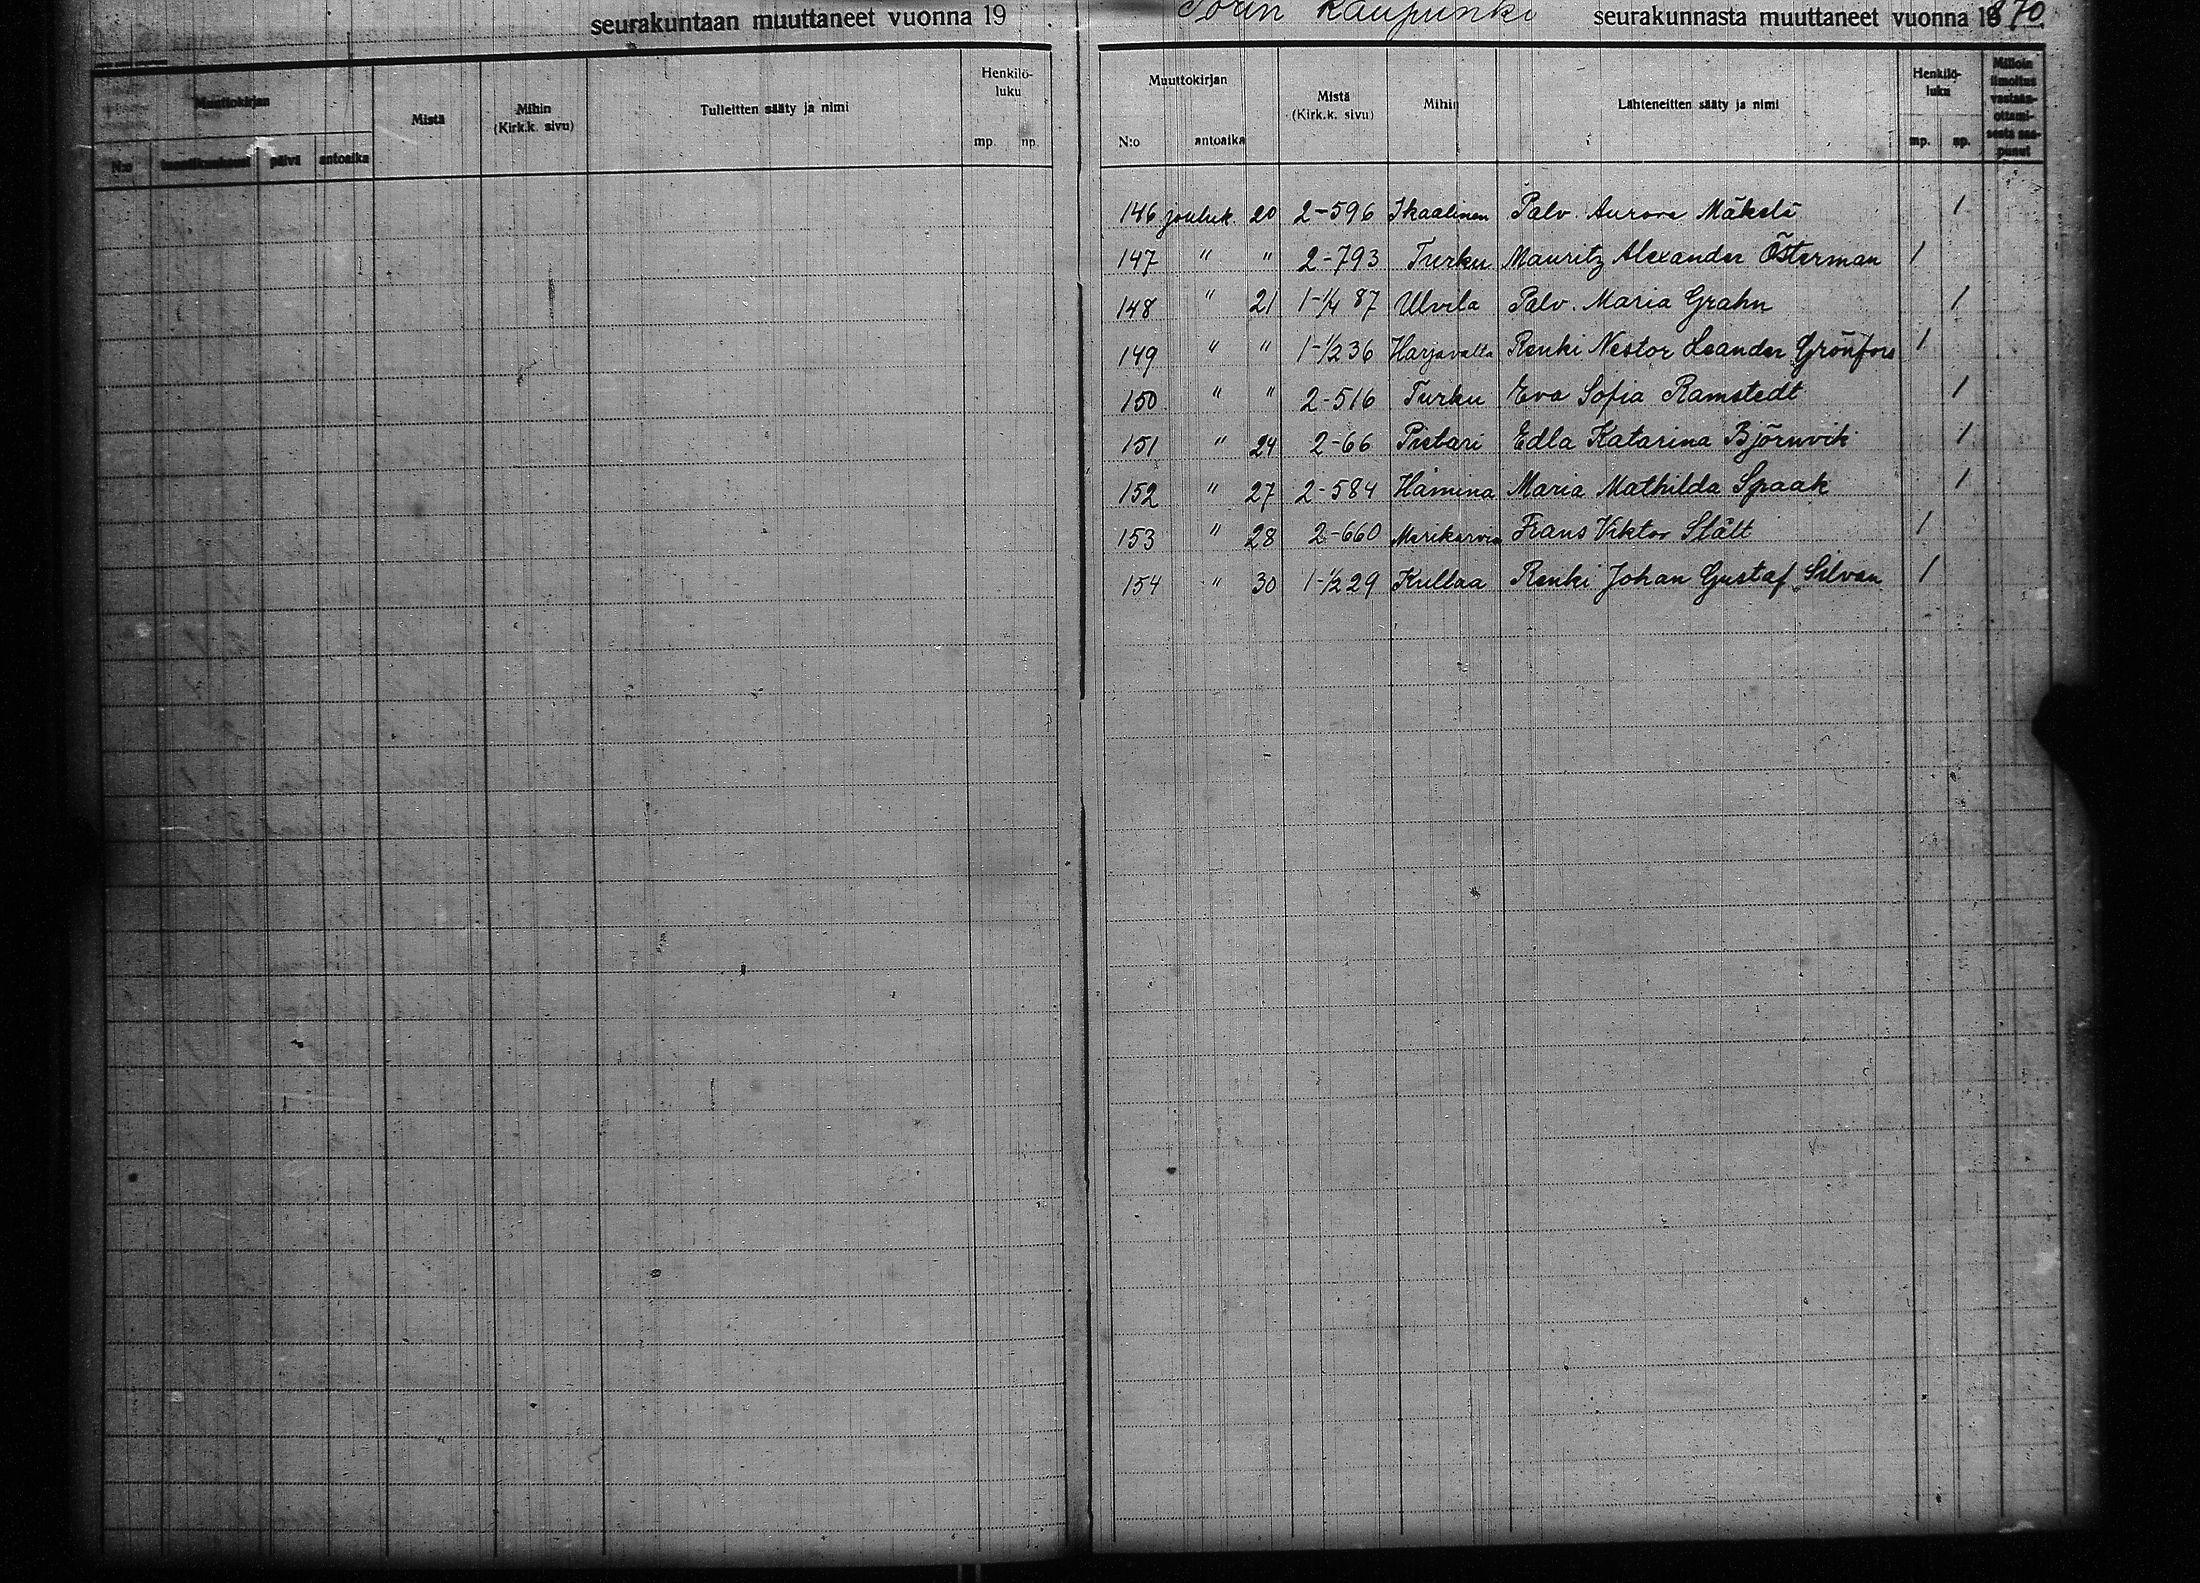 seurakuntaan muuttaneet vuonna 19
Muuttokirjan Mistä Mihin (Kirk.k. sivu) Tulleitten sääty ja nimi Henkilö-luku
N:o päivä antoaika mp. np.
Porin kaupunki seurakunnasta muuttaneet vuonna 1870
Muuttokirjan Mistä (Kirk.k. sivu) Mihin Lähteneitten sääty ja nimi Henkilö-luku Milloin ilmoitus vastaan-ottami-sesta saa-punut
N:o antoaika mp. np.
146 jouluk. 20 2-596 Ikaalinen Palv. Aurora Mäkelä 1
147 " " 2-793 Turku Mauritz Alexander Österman 1
148 " 21 1-1/4 87 Ulvila Palv. Maria Grahn 1
149 " " 1-1/2 36 Harjavalta Renki Nestor Leander Grönfors 1
150 " " 2-516 Turku Eva Sofia Ramstedt 1
151 " 24 2-66 Pietari Edla Katarina Björnvik 1
152 " 27 2-584 Hamina Maria Mathilda Spaak 1
153 " 28 2-660 Merikarvia Frans Viktor Stält 1
154 " 30 1-1/2 29 Kullaa Renki Johan Gustaf Silvan 1